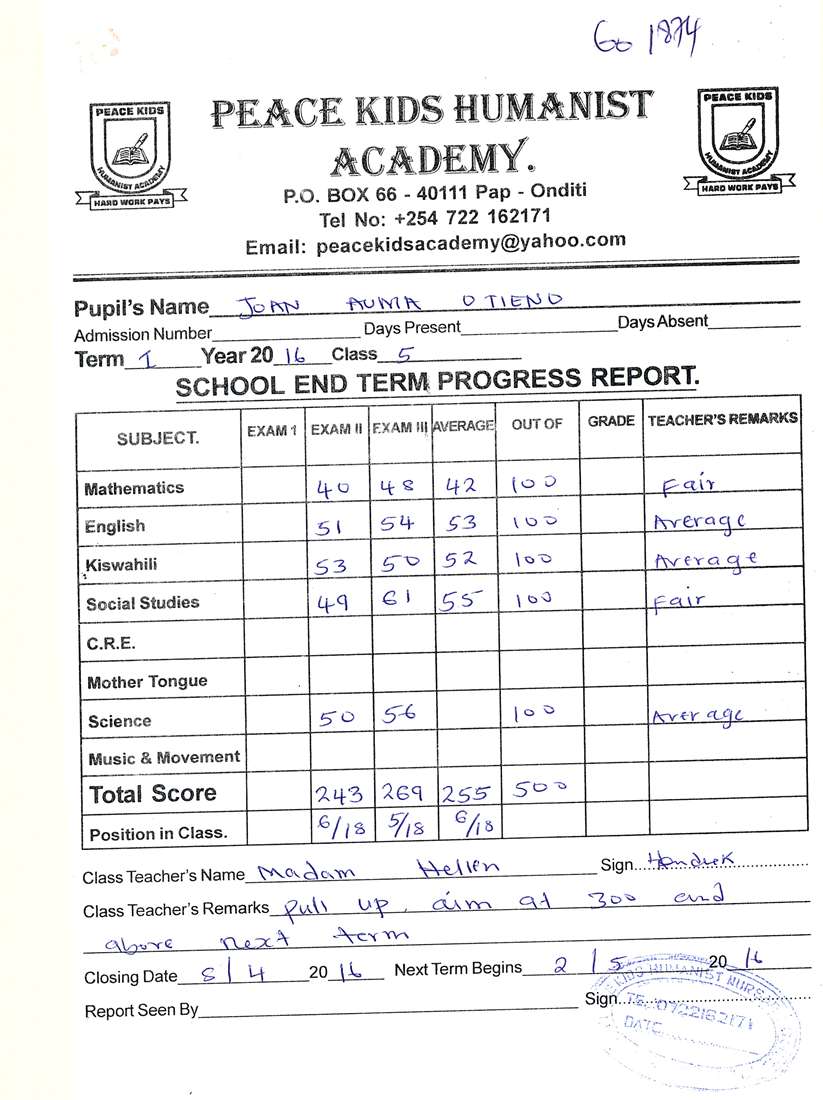 Go 1874
PEACE KIDS
HUMANIST ACADEMY
HARD WORK PAYS
PEACE KIDS HUMANIST
ACADEMY.
PEACE KIDS
HUMANIST ACADEMY
HARD WORK PAYS
P.O. BOX 66 - 40111 Pap - Onditi
Tel No: +254 722 162171
Email: peacekidsacademy@yahoo.com
Pupil's Name JOAN AUMA OTIENO
Admission Number Days Present Days Absent
Term 1 Year 2016 Class 5
SCHOOL END TERM PROGRESS REPORT.
SUBJECT. EXAM 1 EXAM II EXAM III AVERAGE OUT OF GRADE TEACHER'S REMARKS
Mathematics 40 48 42 100 Fair
English 51 54 53 100 Average
Kiswahili 53 50 52 100 Average
Social Studies 49 61 55 100 Fair
C.R.E.
Mother Tongue
Science 50 56 100 Average
Music & Movement
Total Score 243 269 255 500
Position in Class. 6/18 5/18 6/18
Class Teacher's Name Madam Hellen Sign....
Class Teacher's Remarks pull up, aim at 300 and
above next term
Closing Date 8/4 2016 Next Term Begins 2/5 2016
Report Seen By Sign...
KIDS HUMANIST NURS
TEL 0722162171
DATE